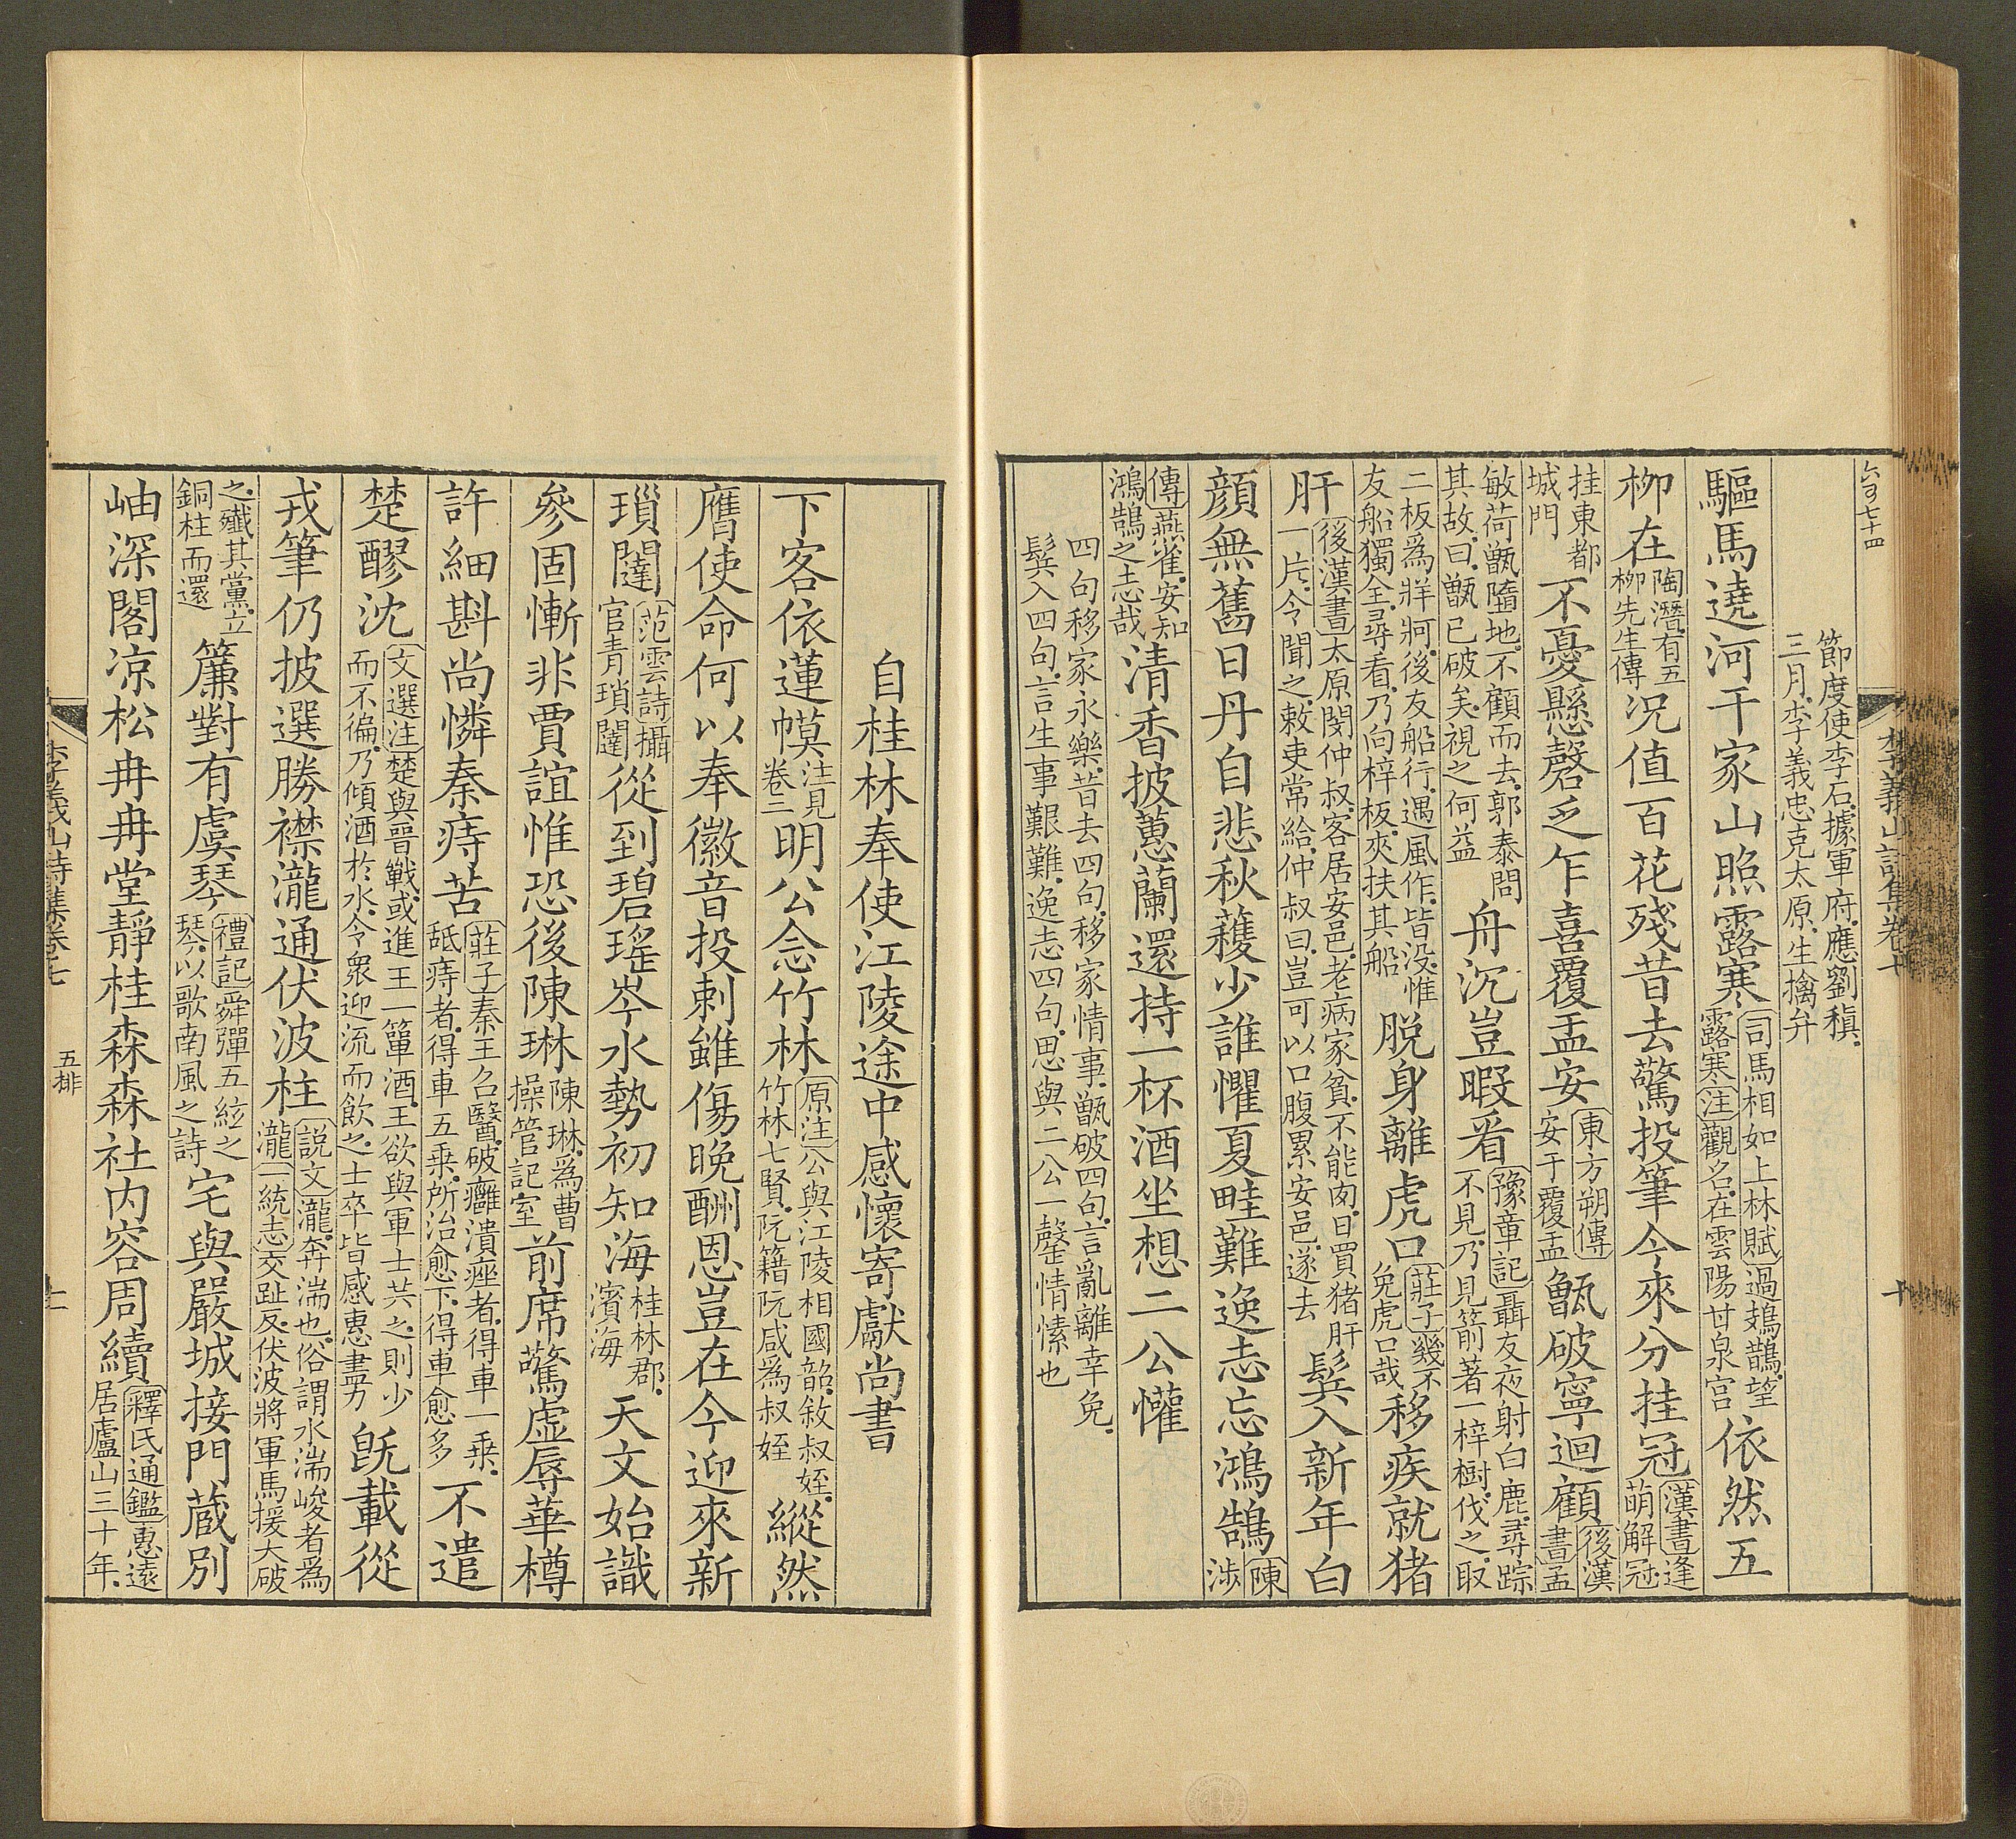 節度使李石據軍府應劉稹
三月李義忠克太原生擒弁
驅馬遶河干家山照露寒司馬相如上林賦過鳷鵲望露寒注觀名在雲陽甘泉宮依然五
柳在陶潛有五柳先生傳況值百花殘昔去驚投筆今來分挂冠漢書逢萌解冠
挂東都城門不憂懸磬乏乍喜覆盂安東方朔傳安于覆盂甑破寧迴顧後漢書孟
敏荷甑墮地不顧而去郭泰問其故曰甑已破矣視之何益舟沉豈暇看豫章記聶友夜射白鹿尋踪不見乃見箭著一梓樹伐之取
二板為牂牁後友船行遇風作皆沒惟友船獨全尋看乃向梓板夾扶其船脫身離虎口莊子幾不免虎口哉移疾就猪
肝後漢書太原閔仲叔客居安邑老病家貧不能肉日買猪肝一片令聞之敕吏常給仲叔曰豈可以口腹累安邑遂去鬂入新年白
顏無舊日丹自悲秋穫少誰懼夏畦難逸志忘鴻鵠陳涉
傳燕雀安知鴻鵠之志哉清香披蕙蘭還持一杯酒坐想二公懽
四句移家永樂昔去四句移家情事甑破四句言亂離幸免
鬂入四句言生事艱難逸志四句思與二公一罄情愫也
李義山詩集卷十
十
自桂林奉使江陵途中感懷寄獻尚書
下客依蓮幙注見卷二明公念竹林原注公與江陵相國韶敘叔姪竹林七賢阮籍阮咸為叔姪縱然
膺使命何以奉徽音投刺雖傷晚酬恩豈在今迎來新
瑣闥范雲詩攝官青瑣闥從到碧瑤岑水勢初知海桂林郡濱海天文始識
參固慚非賈誼惟恐後陳琳陳琳為曹操管記室前席驚虛辱華樽
許細斟尚憐秦痔苦莊子秦王召醫破癰潰痤者得車一乘舐痔者得車五乘所治愈下得車愈多不遣
楚醪沈文選注楚與晉戰或進王一簞酒王欲與軍士共之則少而不徧乃傾酒於水令衆迎流而飲之士卒皆感惠盡力旣載從
戎筆仍披選勝襟瀧通伏波柱說文瀧奔湍也俗謂水湍峻者為瀧一統志交趾反伏波將軍馬援大破
之殲其黨立銅柱而還簾對有虞琴禮記舜彈五絃之琴以歌南風之詩宅與嚴城接門藏別
岫深閣凉松冉冉堂靜桂森森社內容周續釋氏通鑑惠遠居廬山三十年
五排